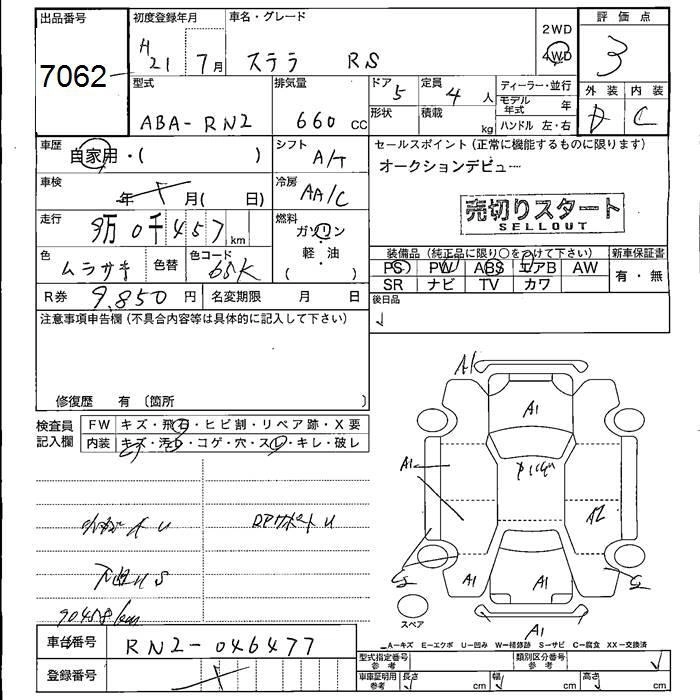 出品番号
7062
初度登録年月
H21 7月
車名・グレード
ステラ RS
2WD
4WD
評価点
3
外装 内装
D C
型式
ABA-RN2
排気量
660 cc
ドア 5
形状
定員 4 人
積載 kg
ディーラー・並行
モデル年式 年
ハンドル 左・右
車歴
自家用・( )
シフト
A/T
セールスポイント(正常に機能するものに限ります)
オークションデビュー
売切りスタート
SELLOUT
車検
年 月( 日)
冷房
AA/C
走行
万0千457km
燃料
ガソリン
軽・油
( )
色
ムラサキ
色替
色コード
R券 9,850円
名変期限 月 日
装備品(純正品に限り○をつけて下さい)
新車保証書
PS PW ABS エアB AW
SR ナビ TV カワ
有・無
後日品
注意事項申告欄(不具合内容等は具体的に記入して下さい)
修復歴 有〔箇所 〕
検査員記入欄
FW キズ・飛石・ヒビ割・リペア跡・X要
内装 キズ・汚れ・コゲ・穴・スレ・キレ・破レ
A1
A1
A1
A2
A1
A1
A1
スペア
A-キズ E-エクボ U-凹み W-補修跡 S-サビ C-腐食 XX-交換済
車台番号
RN2-046477
登録番号
型式指定番号参考
類別区分番号参考
車庫証明用参考
長さ cm
幅 cm
高さ cm